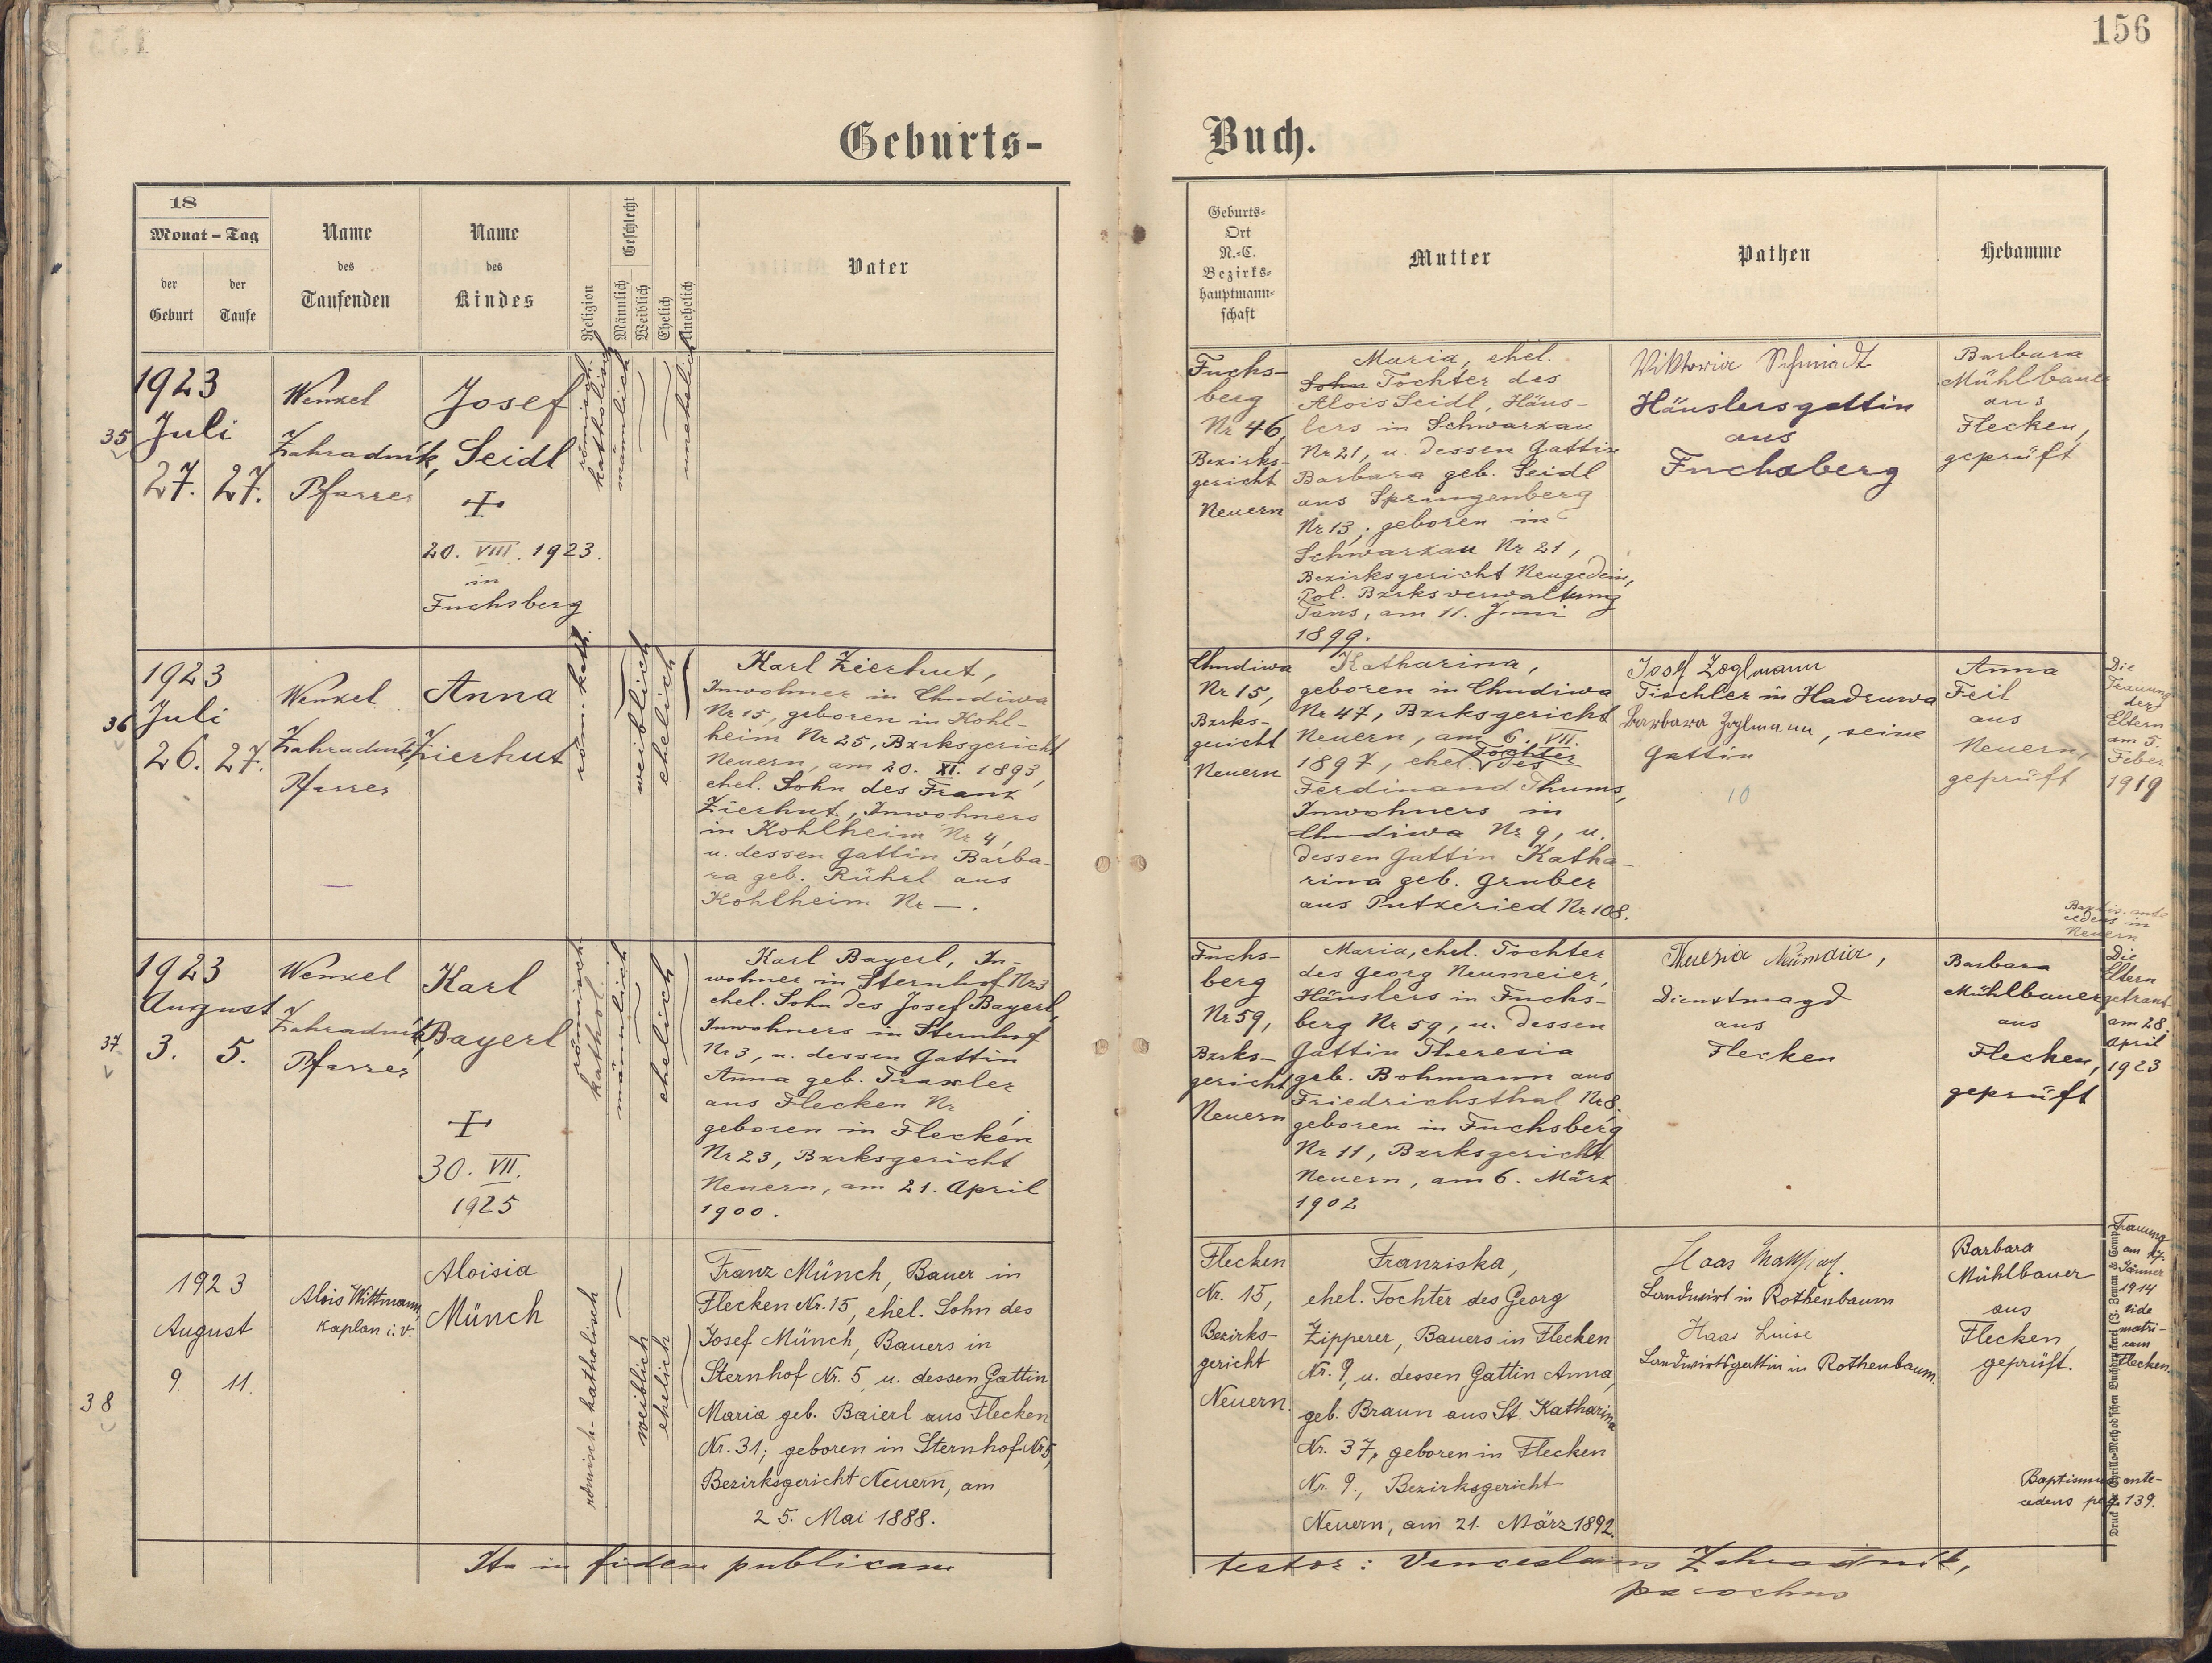 156
Geburts-
Buch.
18
Monat - Tag
der
Geburt
der
Taufe
Name
des
Taufenden
Name
des
Kindes
Religion
Geschlecht
Männlich
Weiblich
Ehelich
Unehelich
Vater
Geburts-
Ort
N.-C.
Bezirks-
hauptmann-
schaft
Mutter
Pathen
Hebamme
35
1923
Juli
27. 27.
Wenzel
Zahradník,
Pfarrer
Josef
Seidl
+
20. VIII. 1923.
in
Fuchsberg
römisch-
katholisch
männlich
unehelich
Fuchs-
berg
Nr 46,
Bezirks-
gericht
Neuern
Maria, ehel.
Sohn Tochter des
Alois Seidl, Häus-
lers in Schwarzau
Nr 21, u. dessen Gattin
Barbara geb. Seidl
aus Springenberg
Nr 13; geboren in
Schwarzau Nr 21,
Bezirksgericht Neugedein,
Pol. Bzrksverwaltung
Taus, am 11. Juni
1899.
Viktoria Schmidt
Häuslersgattin
aus
Fuchsberg
Barbara
Mühlbauer
aus
Flecken,
geprüft
36
1923
Juli
26. 27.
Wenzel
Zahradník,
Pfarrer
Anna
Zierhut
röm.-kath.
weiblich
ehelich
Karl Zierhut,
Inwohner in Chudiwa
Nr 15, geboren in Kohl-
heim Nr 25, Bzrksgericht
Neuern, am 20. XI. 1893,
ehel. Sohn des Franz
Zierhut, Inwohners
in Kohlheim Nr 4,
u. dessen Gattin Barba-
ra geb. Rührl aus
Kohlheim Nr —.
Chudiwa
Nr 15,
Bzrks-
gericht
Neuern
Katharina,
geboren in Chudiwa
Nr 47, Bzrksgericht
Neuern, am 6. VII.
1897, ehel. Tochter des
Ferdinand Thums,
Inwohners in
Chudiwa Nr 9, u.
dessen Gattin Katha-
rina geb. Gruber
aus Putzeried Nr 108.
Josef Zoglmann
Tischler in Hadruwa
Barbara Zoglmann, seine
Gattin
10
Anna
Feil
aus
Neuern,
geprüft
Die
Trauung
der
Eltern
am 5.
Feber
1919
37
1923
August
3. 5.
Wenzel
Zahradník,
Pfarrer
Karl
Bayerl
+
30. VII.
1925
römisch-
kathol.
männlich
ehelich
Karl Bayerl, In-
wohner in Sternhof Nr 3
ehel. Sohn des Josef Bayerl,
Inwohners in Sternhof
Nr 3, u. dessen Gattin
Anna geb. Traxler
aus Flecken Nr
geboren in Flecken
Nr 23, Bzrksgericht
Neuern, am 21. April
1900.
Fuchs-
berg
Nr 59,
Bzrks-
gericht
Neuern
Maria, ehel. Tochter
des Georg Neumeier,
Häuslers in Fuchs-
berg Nr 59, u. dessen
Gattin Theresia
geb. Bohmann aus
Friedrichsthal Nr 8.
geboren in Fuchsberg
Nr 11, Bzrksgericht
Neuern, am 6. März
1902
Theresia
Dienstmagd
aus
Flecken
Barbara
Mühlbauer
aus
Flecken,
geprüft
Baptis. ante
cedens in
Neuern
Die
Eltern
getraut
am 28.
April
1923
38
1923
August
9. 11.
Alois Wittmann,
Kaplan i. V.
Aloisia
Münch
römisch-katholisch
weiblich
ehelich
Franz Münch, Bauer in
Flecken Nr. 15, ehel. Sohn des
Josef Münch, Bauers in
Sternhof Nr. 5, u. dessen Gattin
Maria geb. Baierl aus Flecken
Nr. 31; geboren in Sternhof Nr 5,
Bezirksgericht Neuern, am
25. Mai 1888.
Flecken
Nr. 15,
Bezirks-
gericht
Neuern.
Franziska,
ehel. Tochter des Georg
Zipperer, Bauers in Flecken
Nr. 9, u. dessen Gattin Anna,
geb. Braun aus St. Katharina
Nr. 37, geboren in Flecken
Nr. 9., Bezirksgericht
Neuern, am 21. März 1892.
Haas
Landwirt in Rothenbaum
Haas Luise
Landwirtsgattin in Rothenbaum.
Barbara
Mühlbauer
aus
Flecken,
geprüft.
Trauung
am 27.
Jänner
1914
vide
matri-
cam
Flecken.
Baptismus ante-
cedens pag. 139.
Ita in fidem publicam
testor: Venceslaus Zahradník,
parochus